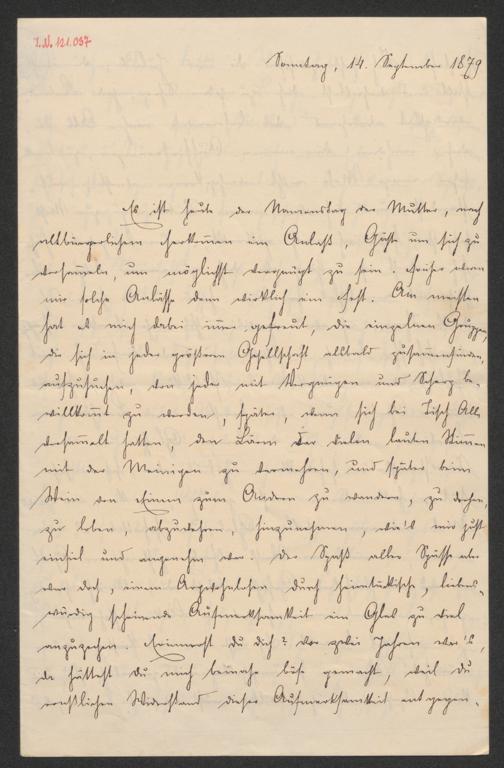 I.N. 121.037
Sonntag, 14. September 1879
Es ist heute der Namenstag der Mutter, nach
altbürgerlichem Herkom̅en ein Anlaß, Gäste um sich zu
versam̅eln, um möglichst vergnügt zu sein. Früher waren
mir solche Anlässe denn wirklich ein Fest. Am meisten
hat es mich dabei im̅er gefreut, die einzelnen Gruppen,
die sich in jeder größeren Gesellschaft allsobald zusam̅enfinden,
aufzusuchen, von jeder mit Vergnügen und Scherz be-
willkom̅t zu werden, später, wenn sich bei Tisch Alle
versam̅elt hatten, den Lärm der vielen lauten Stim̅en
mit der Meinigen zu vermehren, und später beim
Wein von Einem zum Andern zu wandern, zu
zu loben, abzuwehren, hinzunehmen, wie's mir just
einfiel und angenehm war. Der Spaß aller Spässe aber
war doch, einem Argwohnlosen durch heimtückische, liebens-
würdig scheinende Aufmerksamkeit ein Glas zu viel
anzuzechen. Erinnerst du dich? Vor zwei Jahren war's,
da hättest Du mich beinahe bös gemacht, weil Du
Widerstand dieser Aufmerksamkeit entgegen-